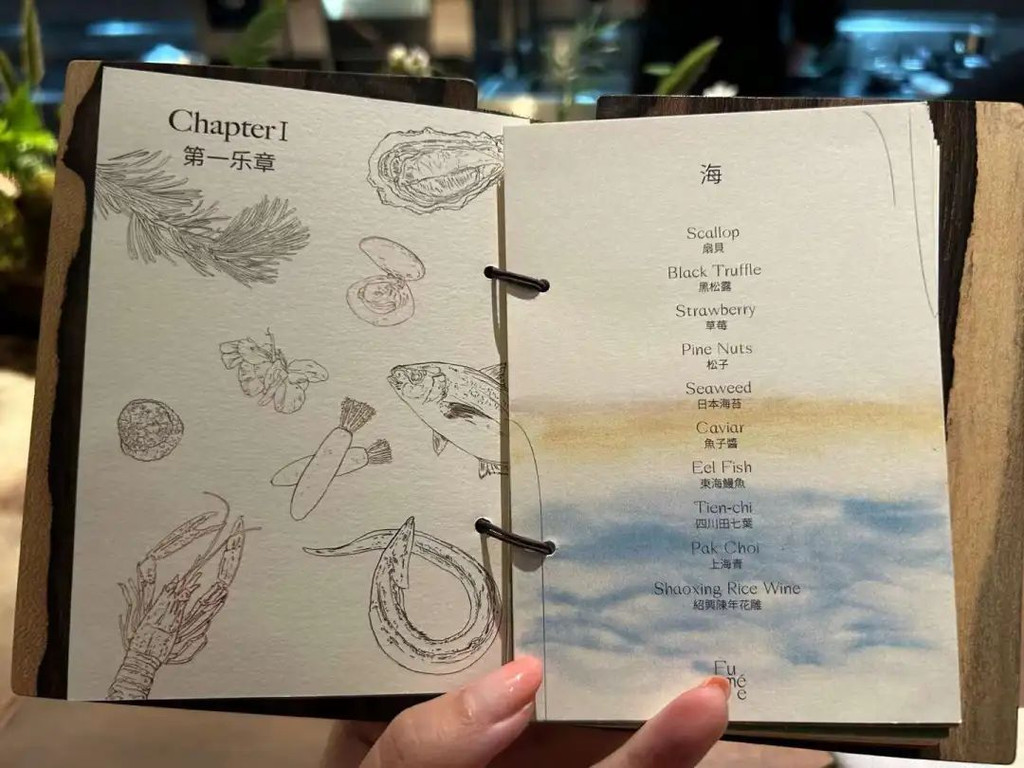 Chapter I
第一乐章
海
Scallop
扇貝
Black Truffle
黑松露
Strawberry
草莓
Pine Nuts
松子
Seaweed
日本海苔
Caviar
魚子醬
Eel Fish
東海鰻魚
Tien-chi
四川田七葉
Pak Choi
上海青
Shaoxing Rice Wine
紹興陳年花雕
Fu
mé
e